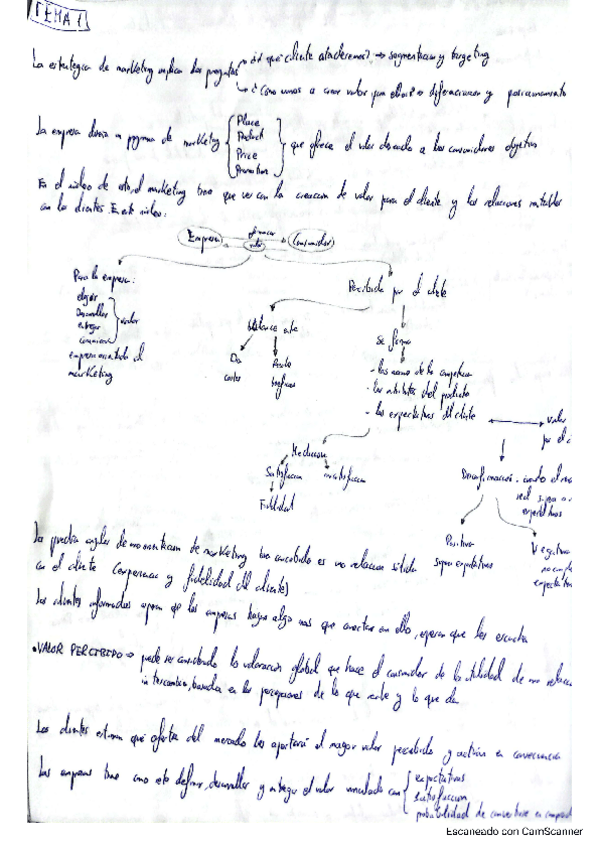 TEMA 1
La estrategia de marketing implica dos preguntas
¿A qué cliente atacaremos? → segmentacion y targeting
¿Cómo vamos a crear valor para ellos? → diferenciacion y posicionamiento
La empresa diseña un programa de marketing
Place
Product
Price
Promotion
que ofrece el valor deseado a los consumidores objetivo
En el núcleo de esto, el marketing tiene que ver con la creacion de valor para el cliente y las relaciones rentables
con los clientes. Este núcleo:
Empresa
valor
Consumidor
Para la empresa:
elegir
Desarrollar
entregar
comunicar
valor
el
marketing
Percibido por el cliente
Balance entre
De
costes
beneficios
Se forma
- las acciones de la competencia
- los atributos del producto
- las expectativas del cliente
valor
por el
Reduccion
Satisfaccion
insatisfaccion
Fidelidad
real supera
expectativas
Positiva
supera expectativas
Negativa
no cumple
expectativas
de marketing es una relacion sólida
con el cliente (experiencias y fidelidad del cliente)
Los clientes informados esperan de las empresas hagan algo mas que conectar con ellos, esperan que les escuchen
• VALOR PERCIBIDO → puede ser considerado la valoración global que hace el consumidor de la utilidad de una relacion
intercambio, basada en las percepciones de lo que recibe y lo que da
Los clientes estiman qué oferta del mercado les aportará el mayor valor percibido y actúan en consecuencia
Las empresas tienen como reto definir, desarrollar y entregar el valor vinculado con
expectativas
satisfaccion
probabilidad de convertirse en
Escaneado con CamScanner